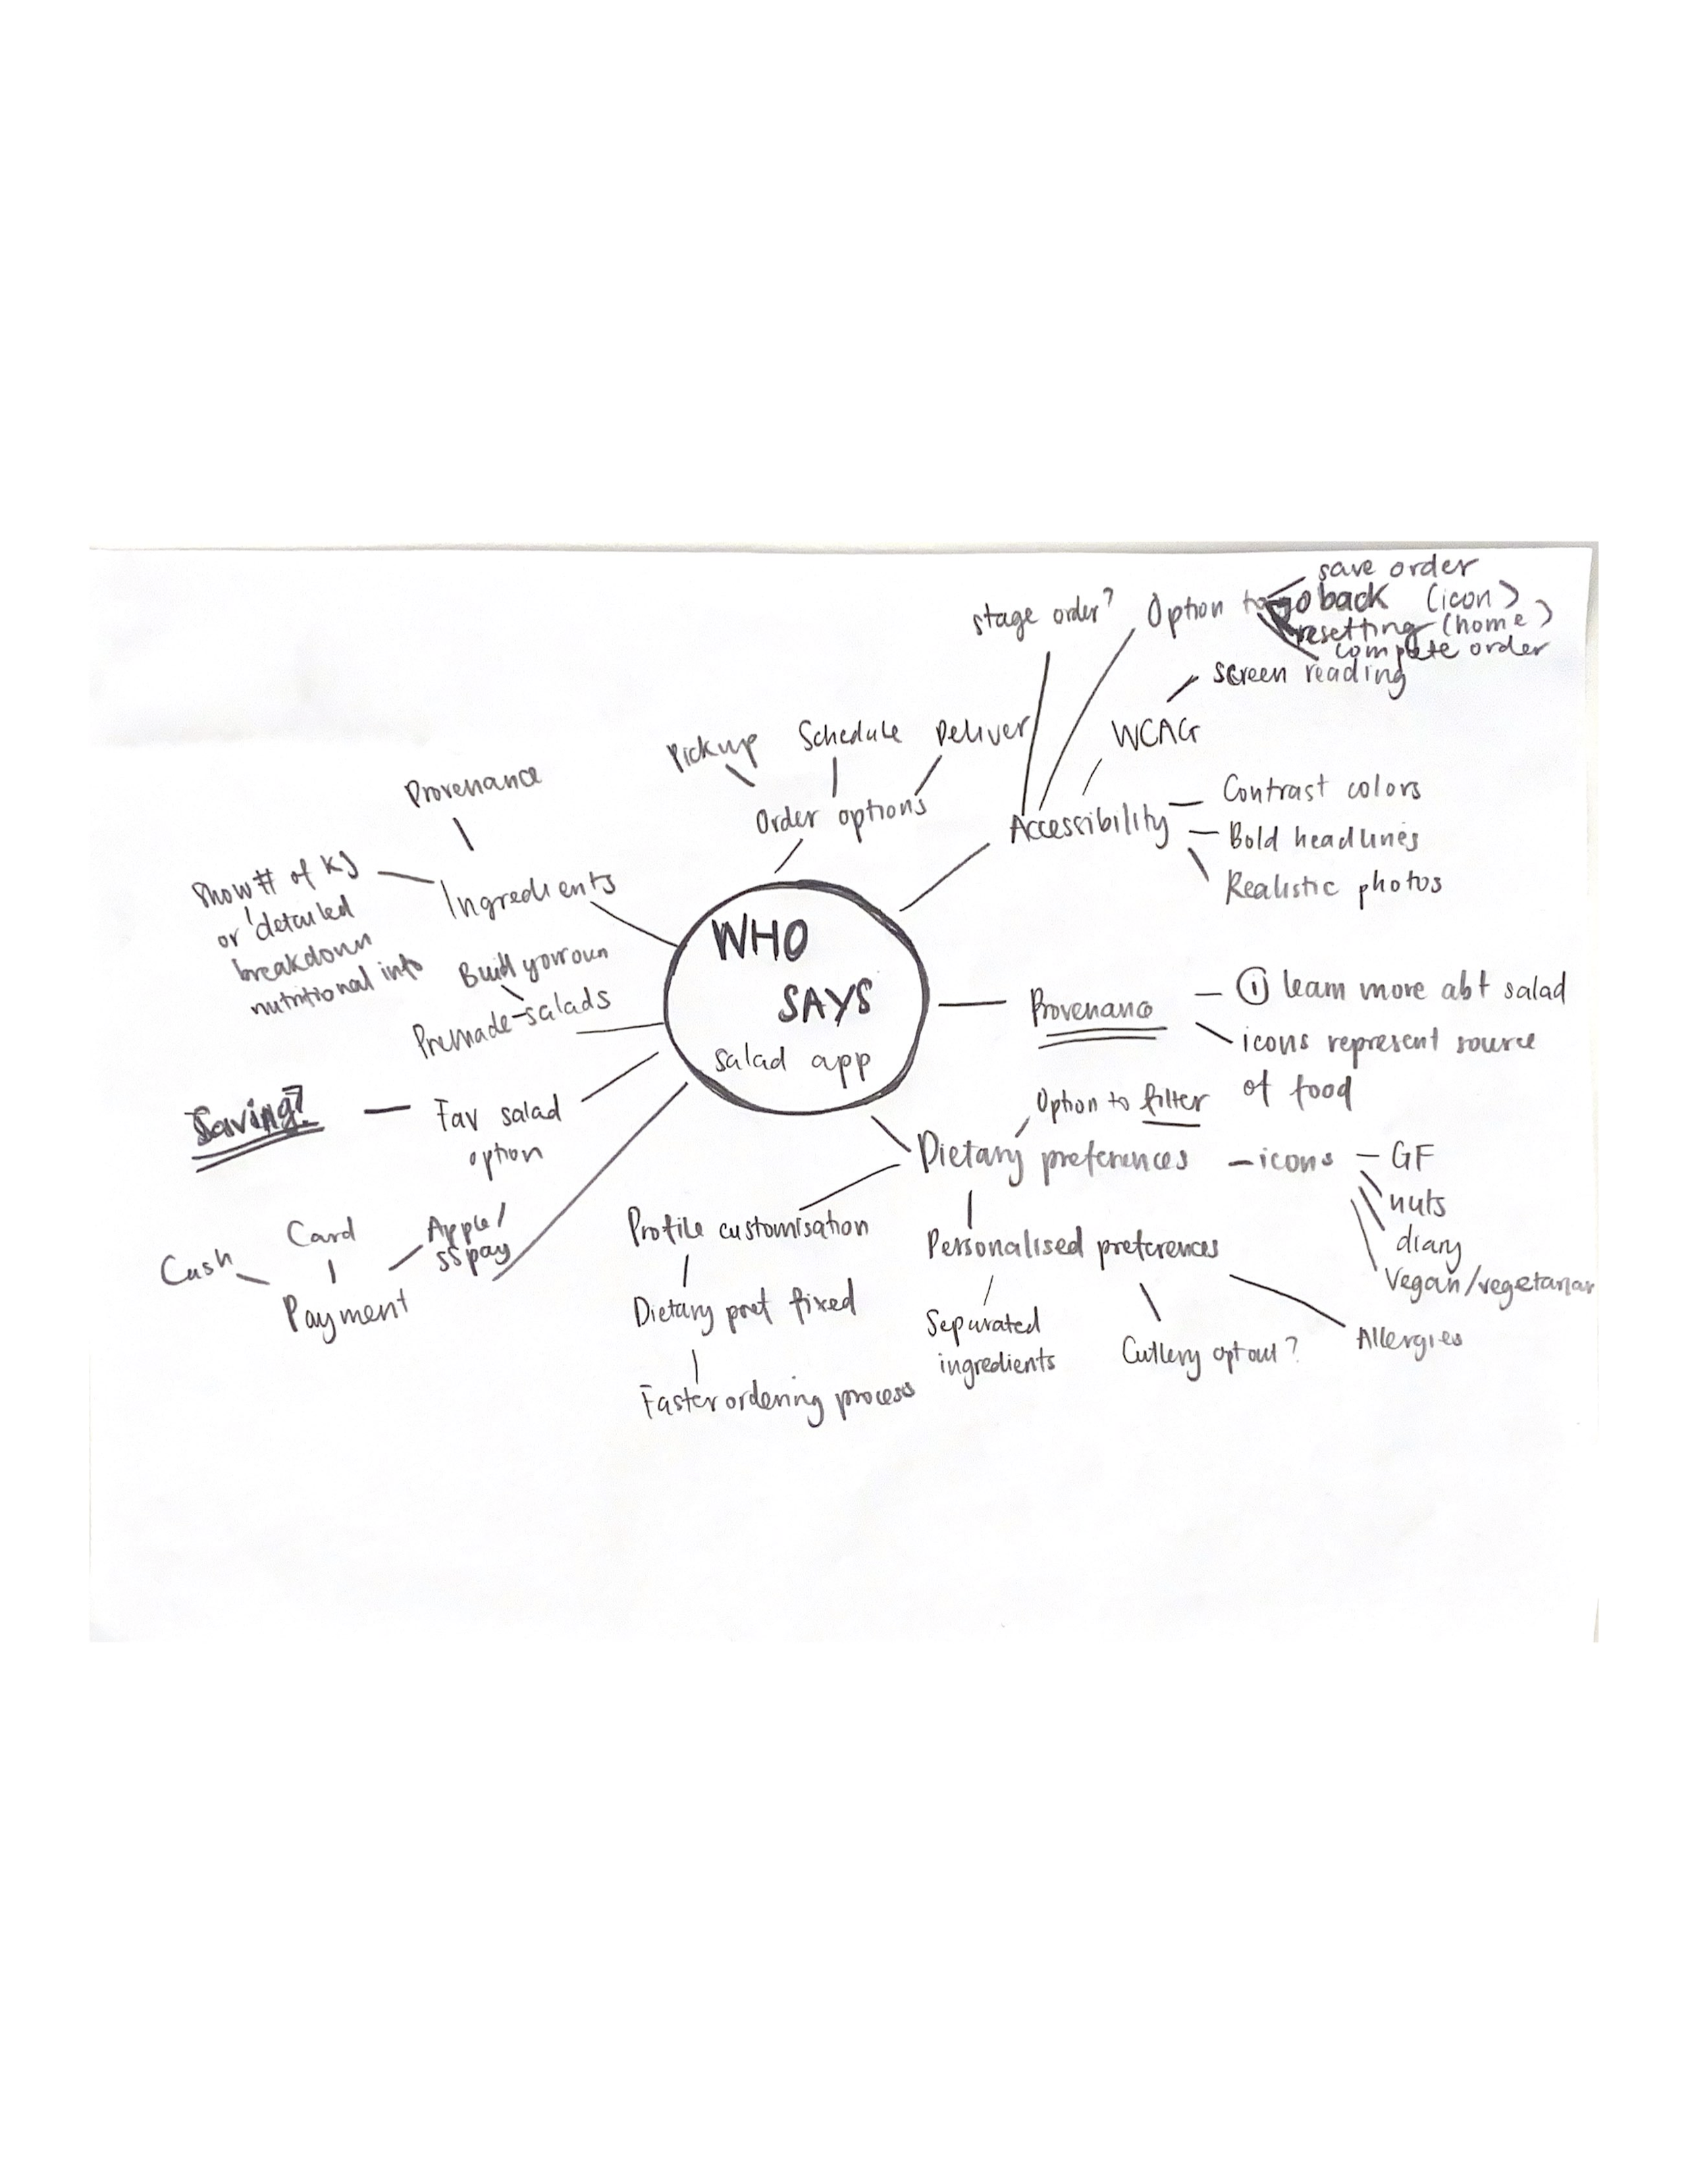 save order
stage order? Option to go back (icon)
resetting (home)
complete order
screen reading
WCAG
Pickup Schedule Deliver
Order options
Accessibility
Contrast colors
Bold headlines
Realistic photos
Provenance
Show # of KJ
or detailed
breakdown
nutritional info
Ingredients
Build your own
Premade-salads
WHO
SAYS
salad app
Provenance
i learn more abt salad
icons represent source
of food
Saving?
Fav salad
option
Option to filter
Dietary preferences - icons - GF
nuts
diary
Vegan/vegetarian
Cash
Card
Apple/
pay
Payment
Profile customisation
Dietary pref fixed
Faster ordering process
Personalised preferences
Separated
ingredients
Cutlery opt out?
Allergies